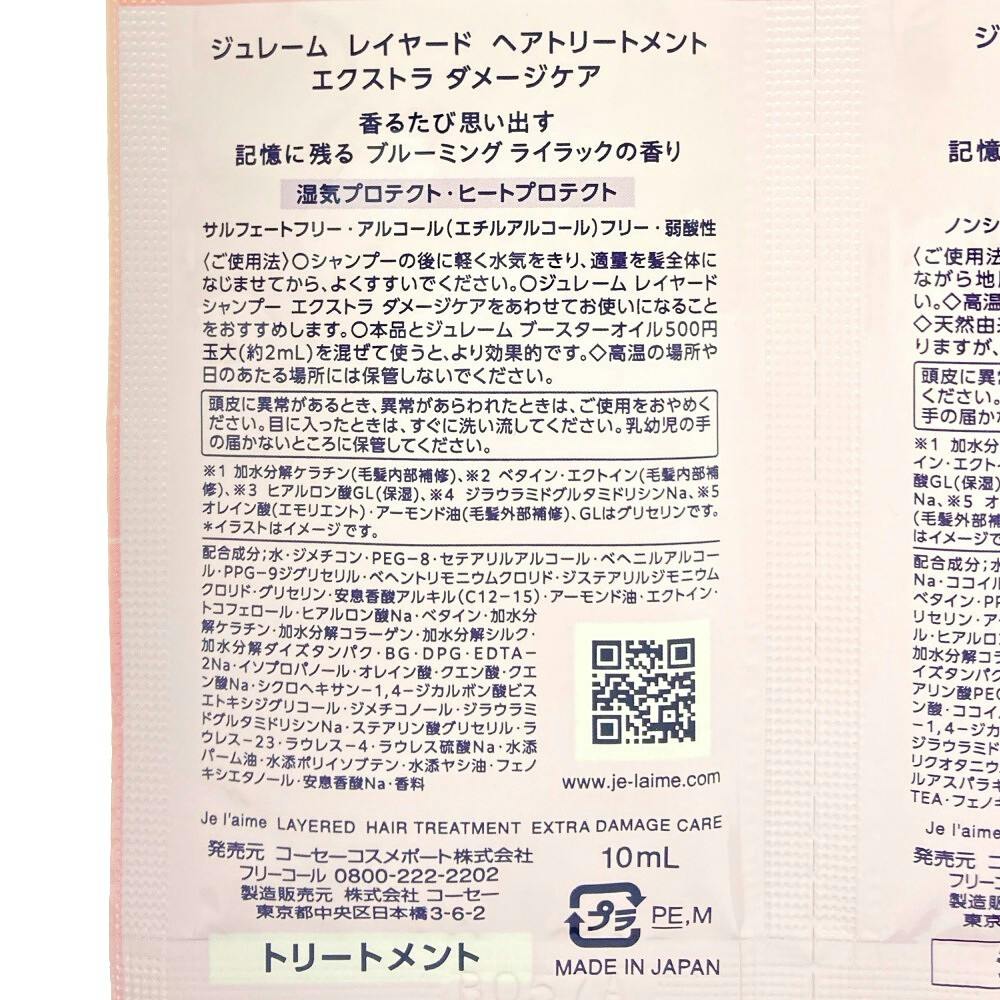 ジュレーム レイヤード ヘアトリートメント
エクストラ ダメージケア
香るたび思い出す
記憶に残る ブルーミング ライラックの香り
湿気プロテクト・ヒートプロテクト
サルフェートフリー・アルコール(エチルアルコール)フリー・弱酸性
〈ご使用法〉〇シャンプーの後に軽く水気をきり、適量を髪全体に
なじませてから、よくすすいでください。〇ジュレーム レイヤード
シャンプー エクストラ ダメージケアをあわせてお使いになること
をおすすめします。〇本品とジュレーム ブースターオイル500円
玉大(約2mL)を混ぜて使うと、より効果的です。◇高温の場所や
日のあたる場所には保管しないでください。
頭皮に異常があるとき、異常があらわれたときは、ご使用をおやめく
ださい。目に入ったときは、すぐに洗い流してください。乳幼児の手
の届かないところに保管してください。
※1 加水分解ケラチン(毛髪内部補修)、※2 ベタイン・エクトイン(毛髪内部補
修)、※3 ヒアルロン酸GL(保湿)、※4 ジラウラミドグルタミドリシンNa、※5
オレイン酸(エモリエント)・アーモンド油(毛髪外部補修)、GLはグリセリンです。
*イラストはイメージです。
配合成分;水・ジメチコン・PEG-8・セテアリルアルコール・ベヘニルアルコー
ル・PPG-9ジグリセリル・ベヘントリモニウムクロリド・ジステアリルジモニウム
クロリド・グリセリン・安息香酸アルキル(C12-15)・アーモンド油・エクトイン・
トコフェロール・ヒアルロン酸Na・ベタイン・加水分
解ケラチン・加水分解コラーゲン・加水分解シルク・
加水分解ダイズタンパク・BG・DPG・EDTA-
2Na・イソプロパノール・オレイン酸・クエン酸・クエ
ン酸Na・シクロヘキサン-1,4-ジカルボン酸ビス
エトキシジグリコール・ジメチコノール・ジラウラミ
ドグルタミドリシンNa・ステアリン酸グリセリル・ラ
ウレス-23・ラウレス-4・ラウレス硫酸Na・水添
パーム油・水添ポリイソブテン・水添ヤシ油・フェノ
キシエタノール・安息香酸Na・香料
www.je-laime.com
Je l'aime LAYERED HAIR TREATMENT EXTRA DAMAGE CARE
発売元 コーセーコスメポート株式会社
フリーコール 0800-222-2202
製造販売元 株式会社 コーセー
東京都中央区日本橋3-6-2
10mL
プラ PE,M
MADE IN JAPAN
トリートメント
ジ
記憶
ノンシ
〈ご使用法
ながら地
い。◇高温
◇天然由
りますが、
頭皮に異常
ください。
手の届か
※1 加水分
イン・エクト
酸GL(保湿)
Na、※5 オ
(毛髪外部補
はイメージで
配合成分;水
Na・ココイル
ベタイン・PP
リセリン・ア
ル・ヒアルロ
加水分解コラ
イズタンパク
アリン酸PEG
ン酸・ココイ
-1,4-ジカ
ジラウラミド
リクオタニウ
ルアスパラギ
TEA・フェノキ
Je l'aime
発売元 コ
フリー
製造販
東京